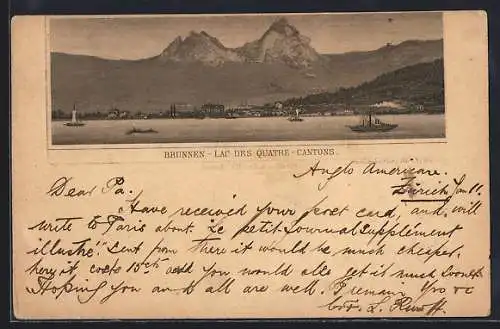 BRUNNEN - LAC DES QUATRE - CANTONS.
Anglo Americare.
Zurich Jan 11.
Dear Pa.
Have received your post card, and will
write to Paris about. Le petit Journal Supplément
illustré". Sent from there it would be much cheaper,
here it costs 15cts and you would also get it much sooner
Hoping you and all are well. I remain yrs &c
L.